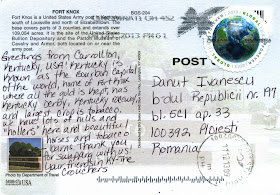 FORT KNOX
BGS-204
Fort Knox is a United States Army post in
south of Louisville and north of Elizabethtown. The
base covers parts of 3 counties and extends
109,054 acres. It is the site of the United States
Bullion Depository and the Patton Museum of
Cavalry and Armor, both located on
OH 452
2013 PM 6 L
POST
Greetings from Carrollton,
Kentucky, USA! Kentucky is
known as the Bourbon Capital
of the world, home of Ft. Knox
where all the gold is kept, has
Kentucky Derby, Kentucky
and largest crop is tobacco.
we have lots of hills and
"hollers" here and beautiful
horses and tobacco
barns. Thank you
for swapping with us!
Your friendship KY-ins
Crouchers
Danut Ivanescu
bdul Republicii nr.
bl. 5C1 ap. 33
100392 Ploiesti
Romania